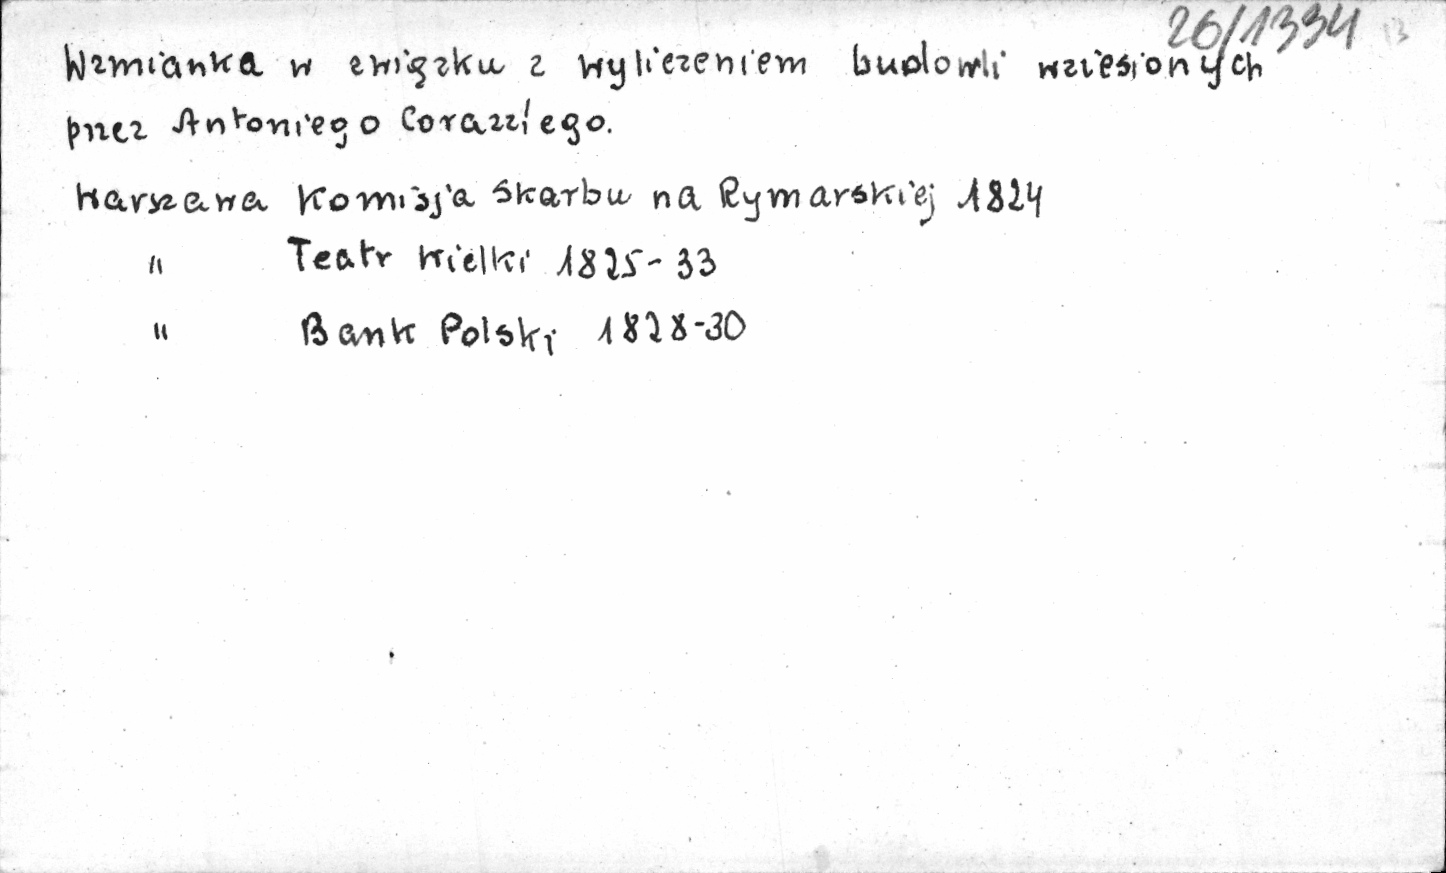 26/1334
Wzmianka w związku z wyliczeniem budowli wzniesionych
przez Antoniego Corazziego.
Warszawa Komisja Skarbu na Rymarskiej 1824
" Teatr Wielki 1825-33
" Bank Polski 1828-30